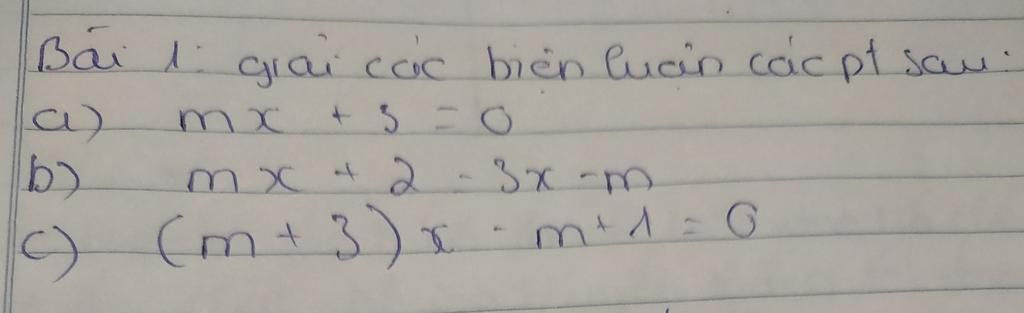 Bài 1: giải các biện luận các pt sau:
a) mx + 3 = 0
b) mx + 2 - 3x - m
c) (m + 3) x - m + 1 = 0